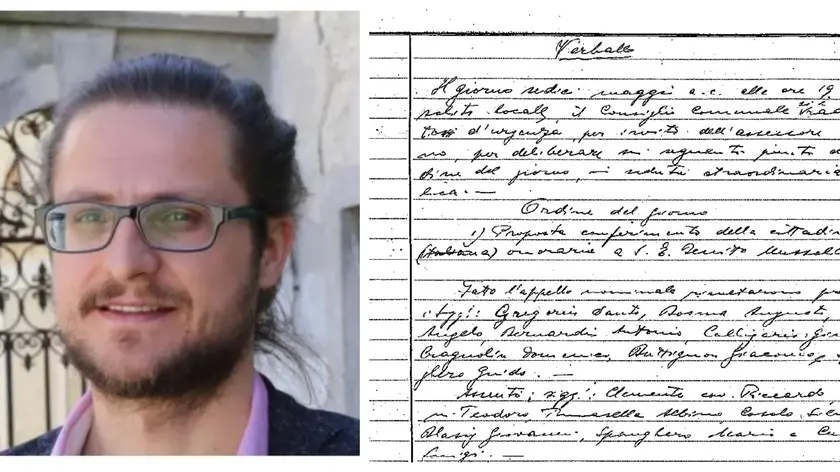 Verbale
Il giorno sedici maggio a.c. alle ore 19
solito locale, il Consiglio Comunale
d'urgenza, per invito dell'assessore
no, per deliberare sui seguenti punti
dine del giorno, - seduta straordinaria
lica. —
Ordine del giorno
1) Proposta conferimento della cittadin
(italiana) onoraria a S. E. Benito Mussol
Fatto l'appello nominale
i sigg: Gregoris Santo, Bosma Augusto,
Angelo, Bernardis Antonio, Calligaris
Cragnolin Domenico, Buttignon Giacomo,
ghero Guido. —
Assenti, sigg: Clemente cav. Riccardo
Teodoro, Tomasella Albino, Cosolo
Blasig Giovanni, Spanghero Mario e
Luigi. —